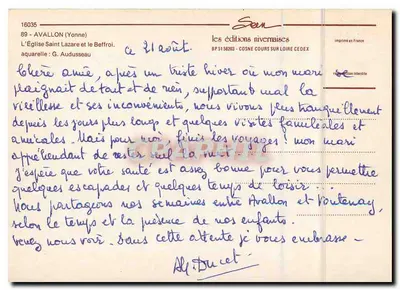 16035
89 - AVALLON (Yonne)
L'Église Saint Lazare et le Beffroi.
aquarelle : G. Audusseau
les éditions nivernaises
BP 31 58203 - COSNE COURS SUR LOIRE CEDEX
Imprimé en France
ce 21 août.
Chère amie, après un triste hiver où mon mari
se plaignait de tout et de rien, supportant mal la
vieillesse et ses inconvénients, nous vivons plus tranquillement
depuis les jours plus longs et quelques visites familiales et
amicales. Mais pour moi, finis les voyages ! mon mari
appréhendant de rester seul la nuit.
J'espère que votre santé est assez bonne pour vous permettre
quelques escapades et quelques temps de loisir...
Nous partageons nos semaines entre Avallon et Fontenay,
selon le temps et la présence de nos enfants.
Venez nous voir. Dans cette attente je vous embrasse -
Ducet